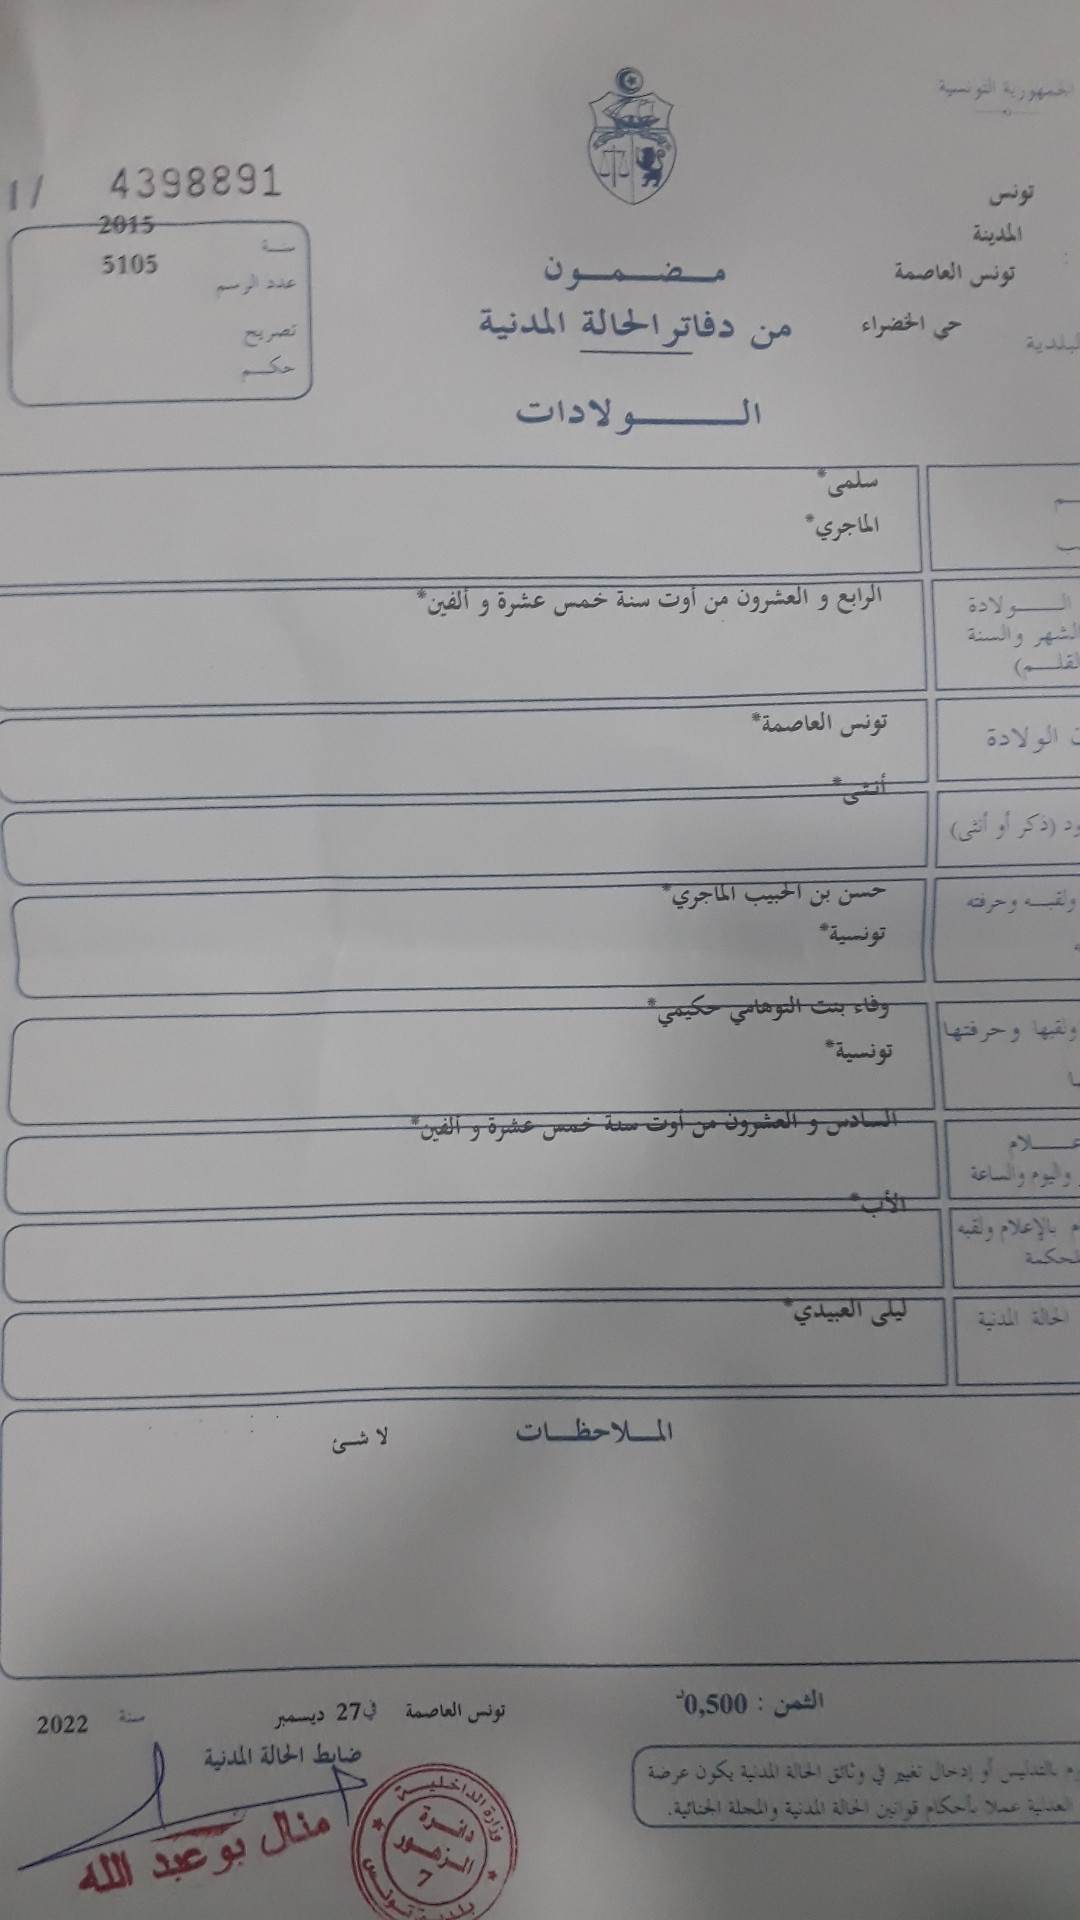 الجمهورية التونسية
تونس
المدينة
تونس العاصمة
حي الخضراء
لبلدية
4398891 / I
سنة 2015
عدد الرسم 5105
تصريح
حكم
مضمون
من دفاتر الحالة المدنية
الولادات
سلمى*
الماجري*
الولادة
لشهر والسنة
لقلم)
الرابع و العشرون من أوت سنة خمس عشرة و ألفين*
ن الولادة
تونس العاصمة*
ود (ذكر أو أنثى)
أنثى*
ولقبه وحرفته
حسن بن الحبيب الماجري*
تونسية*
ولقبها وحرفتها
وفاء بنت التوهامي حكيمي*
تونسية*
علام
واليوم والساعة
السادس و العشرون من أوت سنة خمس عشرة و ألفين*
م بالإعلام ولقبه
لمحكمة
الأب*
الحالة المدنية
ليلى العبيدي*
الملاحظات
لا شئ
الثمن : 0,500د
تونس العاصمة في 27 ديسمبر سنة 2022
ضابط الحالة المدنية
منال بو عبد الله
وزارة الداخلية
دائرة
الزهور
7
بلدية تونس
م بالتدليس أو إدخال تغيير في وثائق الحالة المدنية يكون عرضة
العدلية عملا بأحكام قوانين الحالة المدنية والمجلة الجنائية.